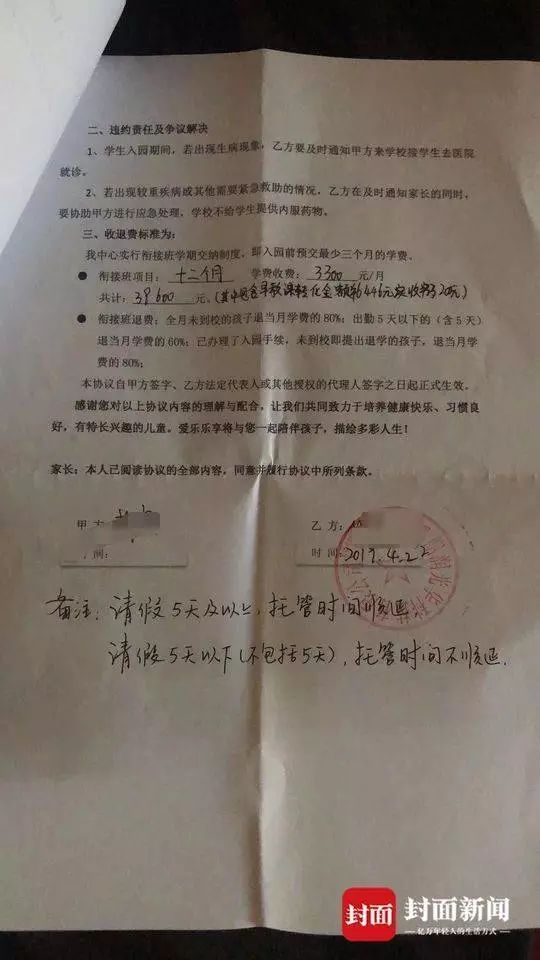 二、违约责任及争议解决
1、学生入园期间，若出现生病现象，乙方要及时通知甲方来学校接学生去医院
就诊。
2、若出现较重疾病或其他需要紧急救助的情况，乙方在及时通知家长的同时，
要协助甲方进行应急处理，学校不给学生提供内服药物。
三、收退费标准为：
我中心实行衔接班学期交纳制度，即入园前预交最少三个月的学费。
● 衔接班项目：十二个月 学费收费：3300 元/月
共计：39600 元。(其中包含早教课转化金额
● 衔接班退费：全月未到校的孩子退当月学费的 80%；出勤 5 天以下的（含 5 天）
退当月学费的 60%；已办理了入园手续，未到校即提出退学的孩子，退当月学
费的 80%；
本协议自甲方签字、乙方法定代表人或其他授权的代理人签字之日起正式生效。
感谢您对以上协议内容的理解与配合，让我们共同致力于培养健康快乐、习惯良
好，有特长兴趣的儿童。爱乐乐享将与您一起陪伴孩子，描绘多彩人生！
家长：本人已阅读协议的全部内容，同意并履行协议中所列条款。
甲方 乙方：
间： 时间：2019.4.22
备注：请假5天及以上，托管时间顺延
请假5天以下(不包括5天)，托管时间不顺延.
封面 封面新闻
亿万年轻人的生活方式